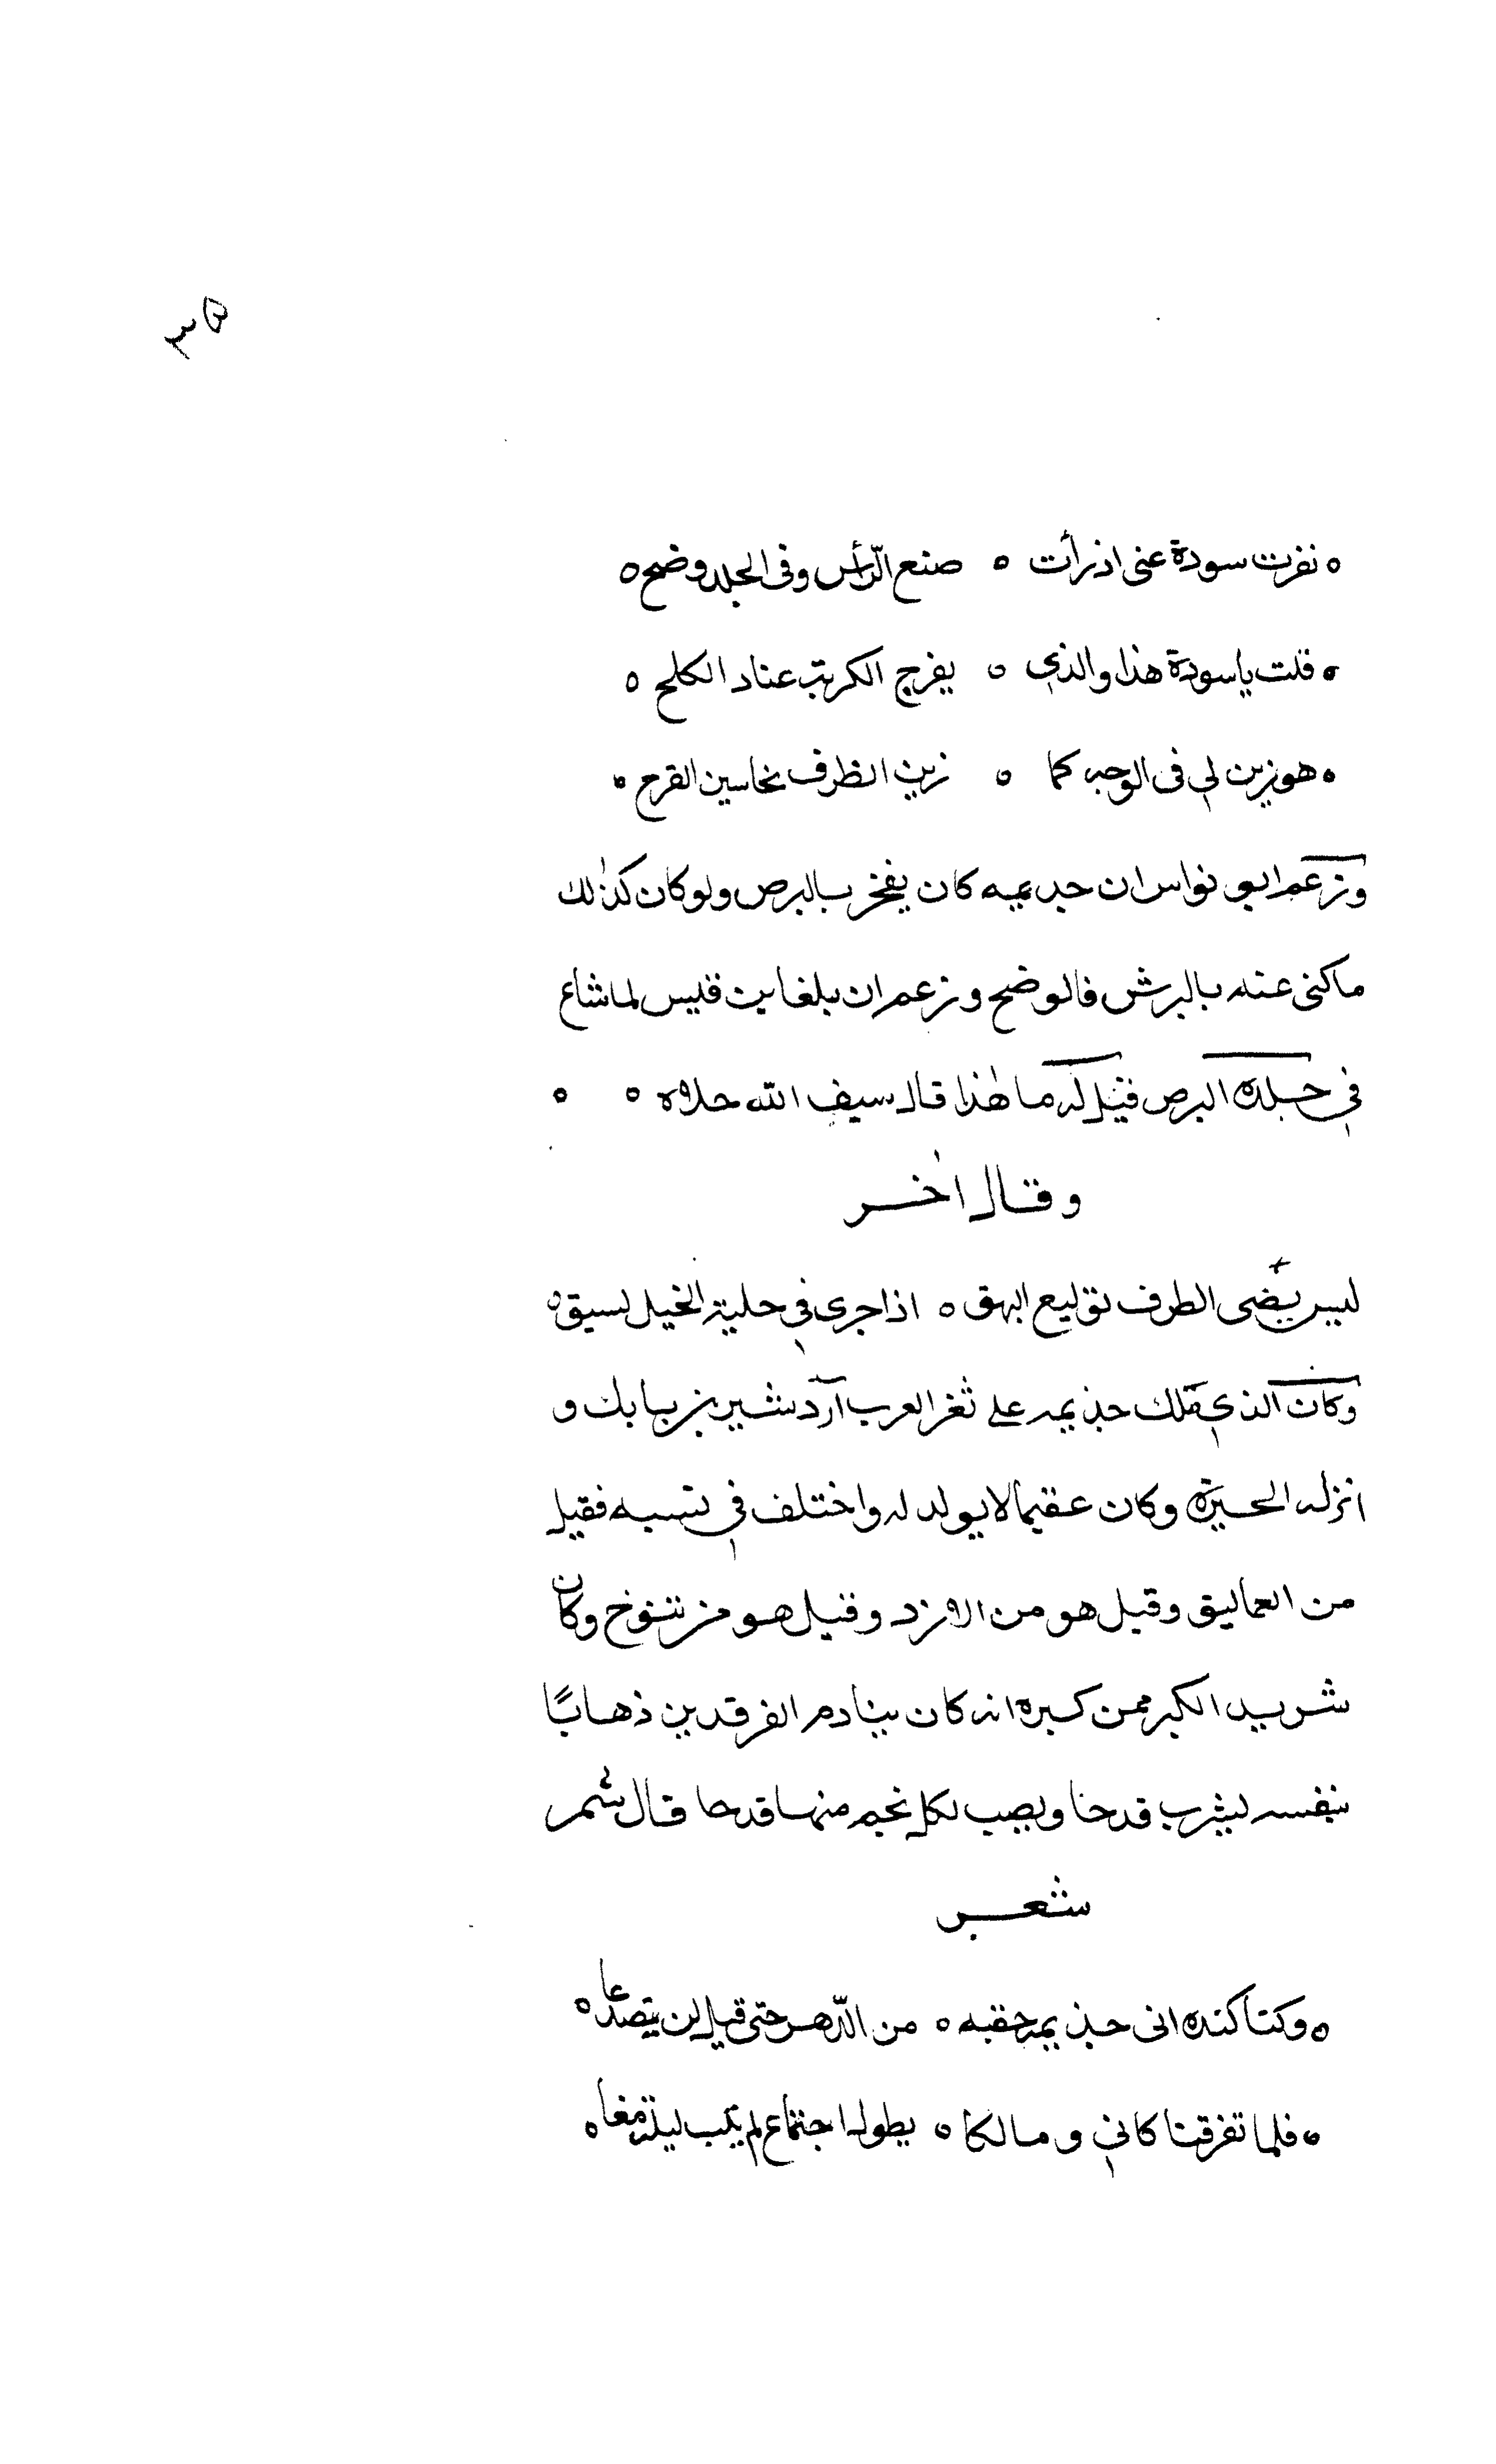 ٣٥
ه نفرت سودة عنى اذ رأت ه صنع الرّأس وفى الجلد وضح ه
ه قلت يا سودة هذا والذي ه يفرج الكربة عناد الكلح ه
ه هو زين لي فى الوجه كما ه زين الظرف نحاسين القرح ه
وزعم ابو نواس ان جديمه كان يفخر بالبرص ولو كان كذلك
ما كنى عنه بالبرش فالوضح وزعم ان بلغا بن قيس لما شاع
في جلده البرص فقيل له ما هذا قال سيف الله حلاه ه ه
وقال اخر
ليس يضى الطرف توليع البهق ه اذا جرى في حلبة الخيل لسبق ه
وكان الذي ملك جذيمه على ثغر العرب آردشير بن بابك و
انزله الحيرة وكان عقيما لا يولد له واختلف في نسبه فقيل
من العماليق وقيل هو من الازد وقيل هو من تنوخ وكان
شريد الكبر فمن كبره انه كان ينادم الفرقدين ذهابًا
بنفسه ليشرب قدحا ويصب لكل نجم منها قدحا قال شمر
شعر
ه وكنا كنده انى جذيمه حقبه ه من الدّهر حتى قيل لن يتصدّعا ه
ه فلما تفرقنا كاني ومالكا ه بطول اجتماع لم نبت ليلة معا ه